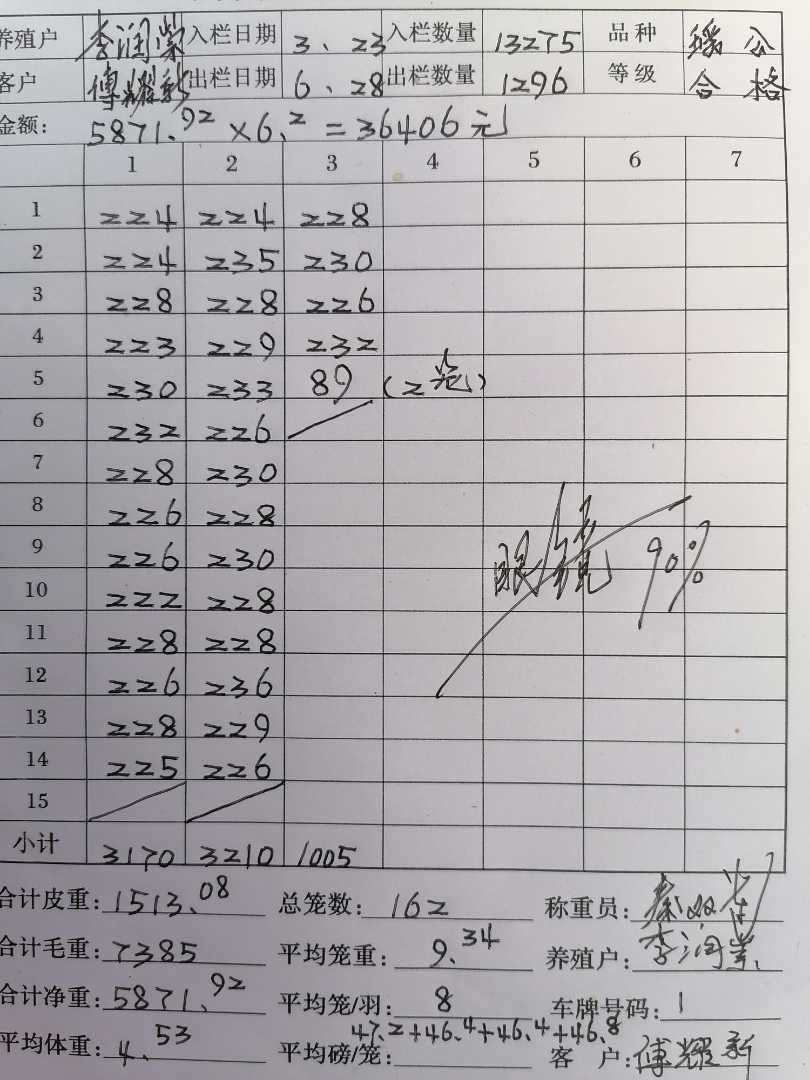 养殖户 李润崇 入栏日期 3、23 入栏数量 13275 品种 瑶公
客户 傅耀新 出栏日期 6、28 出栏数量 1296 等级 合格
金额: 5871.92×6.2=36406元
1 2 3 4 5 6 7
1 224 224 228
2 224 235 230
3 228 228 226
4 223 229 232
5 230 233 89 (2笼)
6 232 226
7 228 230
8 226 228
9 226 230 眼镜 90%
10 222 228
11 228 228
12 226 236
13 228 229
14 225 226
15
小计 3170 3210 1005
合计皮重: 1513.08 总笼数: 162 称重员:
合计毛重: 7385 平均笼重: 9.34 养殖户: 李润崇
合计净重: 5871.92 平均笼/羽: 8 车牌号码: 1
平均体重: 4.53 平均磅/笼: 47.2+46.4+46.4+46.8 客户: 傅耀新